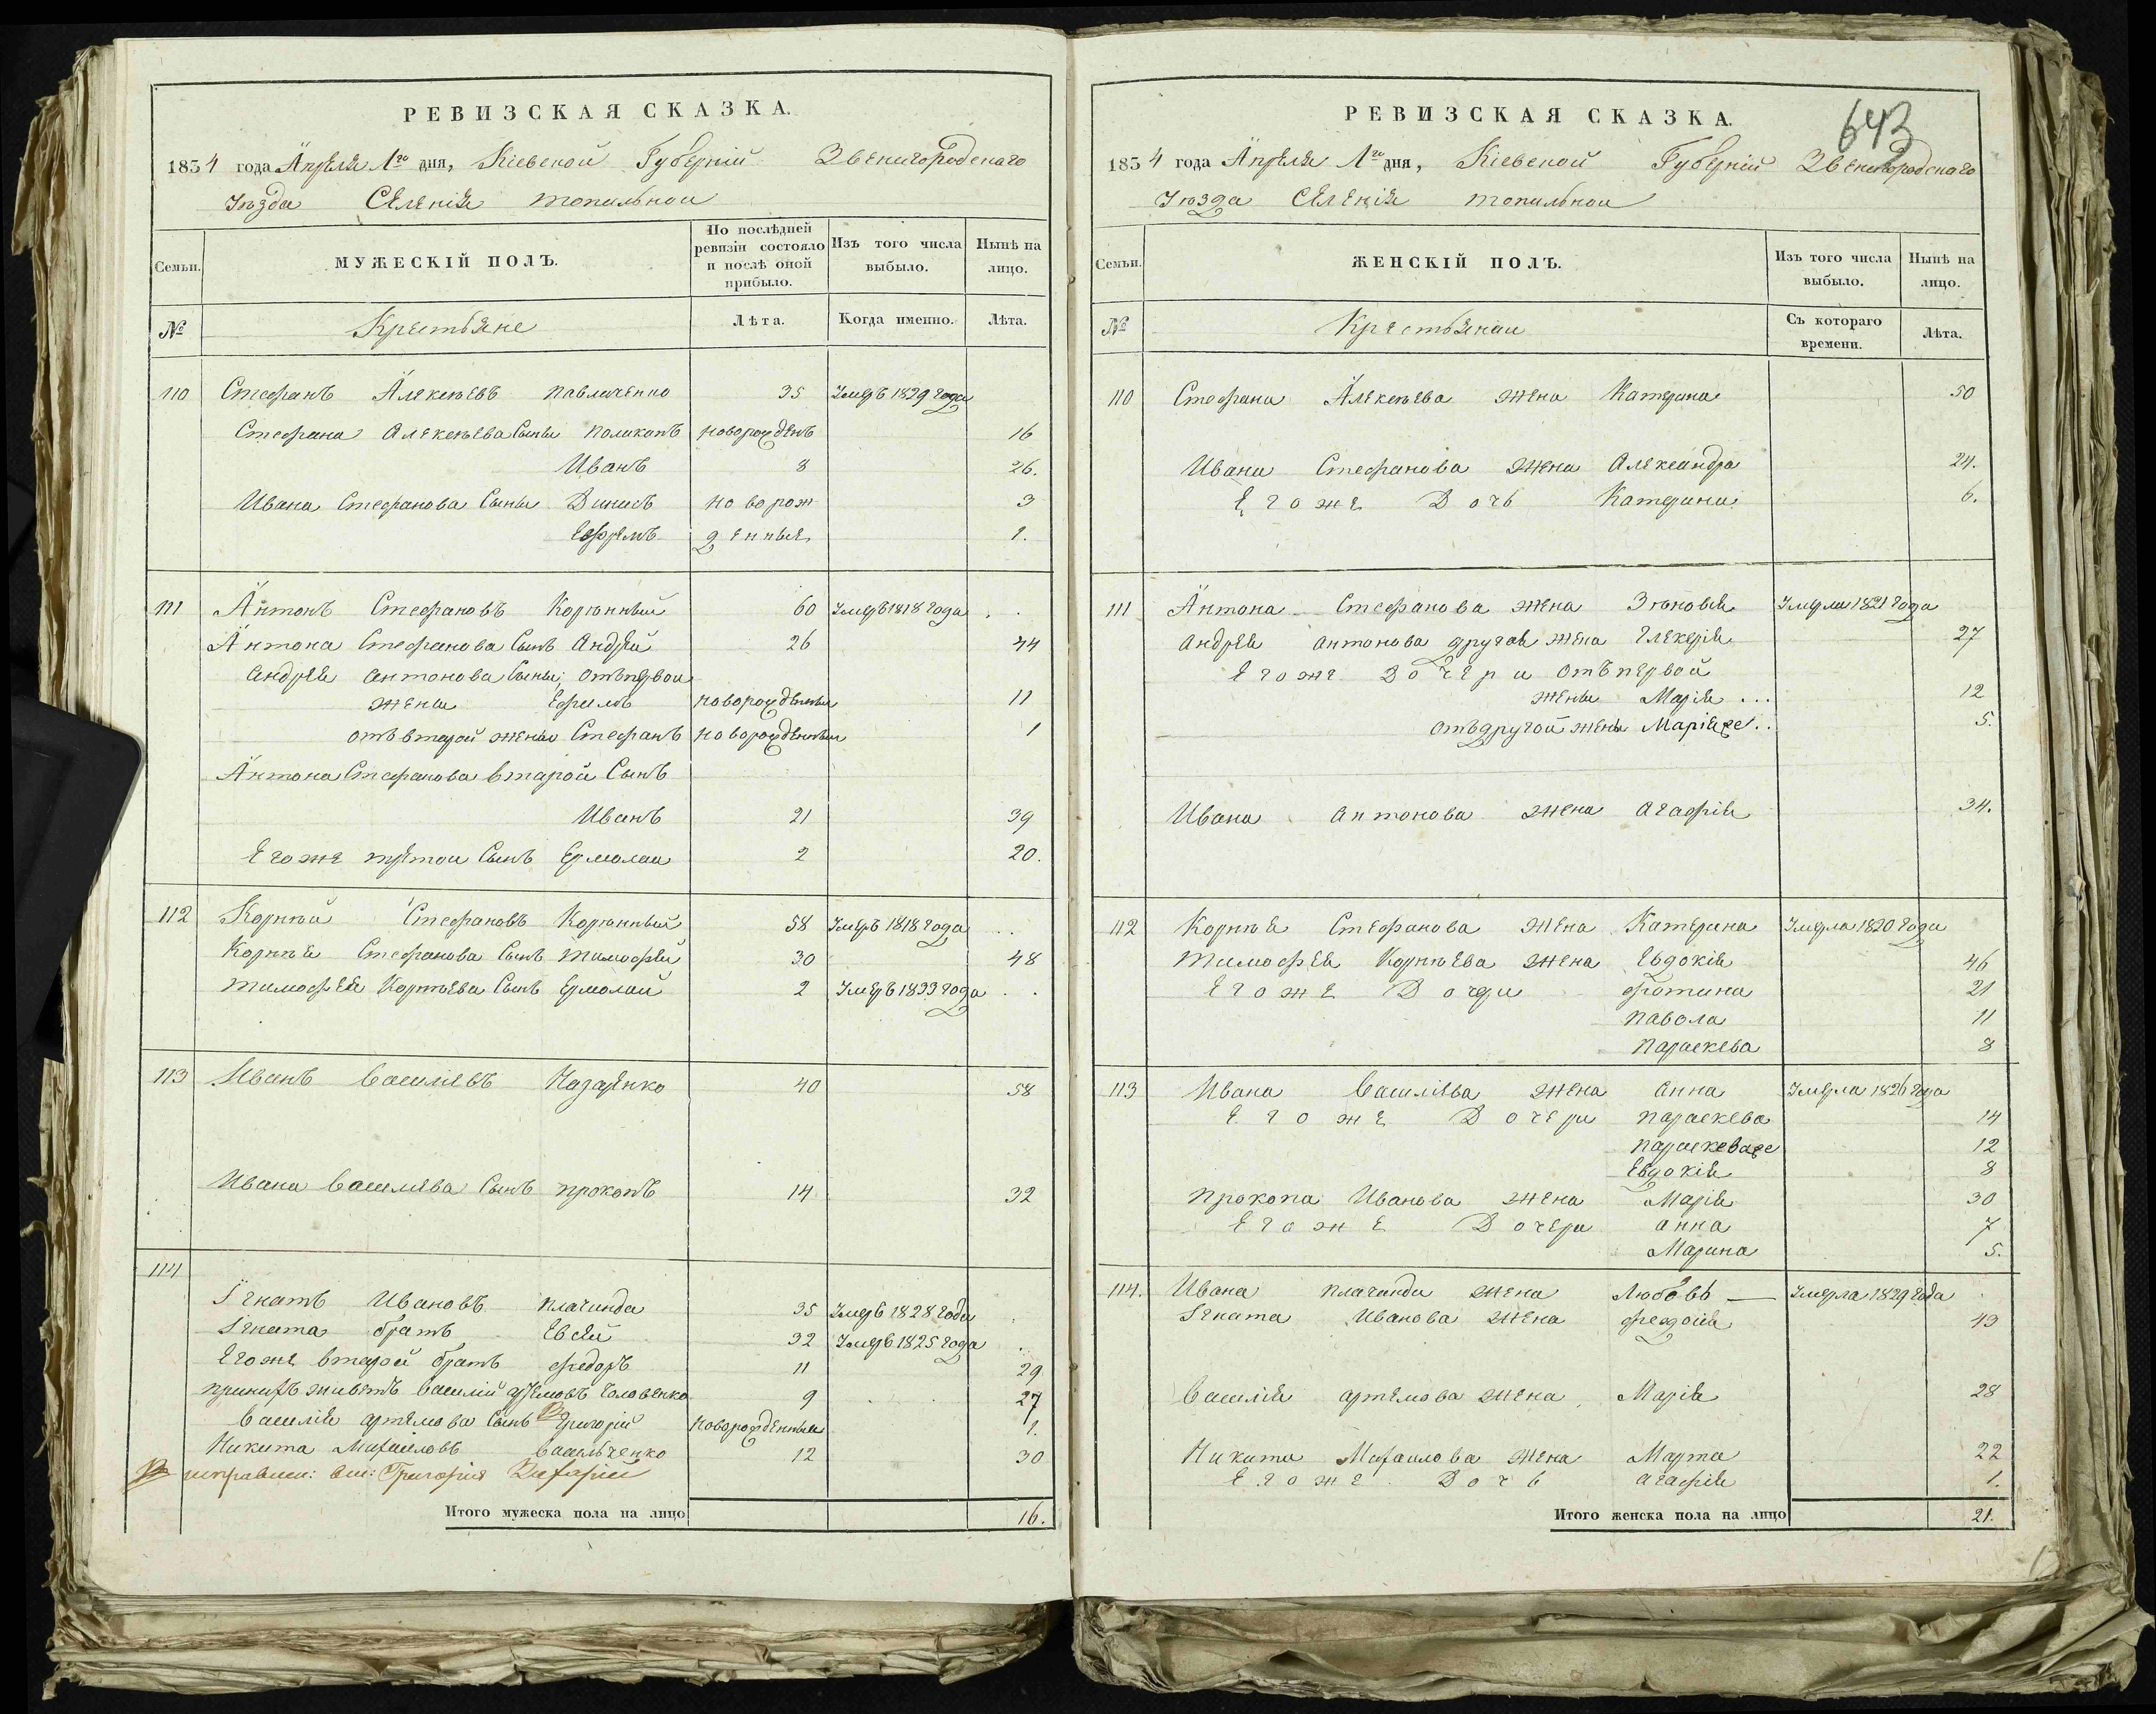 РЕВИЗСКАЯ СКАЗКА.
1834 года Апреля 1го дня, Кіевской Губерніи Звенигородскаго
Уѣзда Селенія топильной
Семьи.
МУЖЕСКІЙ ПОЛЪ.
По послѣдней ревизіи состояло и послѣ оной прибыло.
Изъ того числа выбыло.
Нынѣ на лицо.
№
Крестьяне
Лѣта.
Когда именно.
Лѣта.
110 Стефанъ Алексѣевъ павличенко 35 Умеръ 1829 года
Стефана Алексѣева Сыны поликапъ новорожденъ 16
Иванъ 8 26.
Ивана Стефанова Сыны Динисъ новорож 3
Ефремъ денные 1.
111 Антонъ Стефановъ Корюнный 60 Умеръ 1818 года . .
Антона Стефанова Сынъ Андрей 26 44
Андрея антонова Сыны, отъ первой
жены Ефимъ новорожденныи 11
отъ второй жены Стефанъ новорожденныи 1
Антона Стефанова второй Сынъ
Иванъ 21 39
Егоже третои Сынъ Ермолаи 2 20.
112 Корнѣй Стефановъ Корюнный 58 Умеръ 1818 года . .
Корнѣя Стефанова Сынъ тимофей 30 48
тимофея Корнѣева Сынъ Ермолай 2 Умеръ 1833 года . .
113 Иванъ Василіевъ Назаренко 40 58
Ивана василіева Сынъ прокопъ 14 32
114
Ігнатъ Ивановъ плачинда 35 Умеръ 1828 года .
Ігната братъ Евсей 32 Умеръ 1825 года .
Егоже второй братъ федоръ 11 29
василій артемовъ Головенко 9 . . 27
василія артемова Сынъ Григорій новорожденныи 1.
Никита Михаиловъ васильченко 12 30
Григорія
Итого мужеска пола на лицо 16.
РЕВИЗСКАЯ СКАЗКА.
643
1834 года Апреля 1го дня, Кіевской Губерніи Звенигородскаго
Уѣзда Селенія топильной
Семьи.
ЖЕНСКІЙ ПОЛЪ.
Изъ того числа выбыло.
Нынѣ на лицо.
№
Крестьянки
Съ котораго времени.
Лѣта.
110 Стефана Алексѣева жена Катерина 50
Ивана Стефанова жена Александра 24.
Егоже Дочь Катерина 6.
111 Антона Стефанова жена Зѣновія Умерла 1821 года
андрея антонова другая жена Гликерія 27
Егоже Дочери отъ первой
жены Марія ... 12
отъ другой жены Марія 2е .. 5.
Ивана антонова жена агафія 34.
112 Корнѣя Стефанова жена Катерина Умерла 1820 года
тимофея Корнѣева жена Евдокія 46
Егоже Дочери фотина 21
павола 11
параскева 8
113 Ивана василіева жена анна Умерла 1826 года
Егоже Дочери параскева 14
параскева 2е 12
Евдокія 8
прокопа Иванова жена Марія 30
Егоже Дочери анна 7
Марина 5.
114. Ивана плачинди жена Любовь — Умерла 1829 года
Ігната Иванова жена феодосія 43
василія артемова жена Марія 28
Никити Михаилова жена Марта 22
Егоже Дочь агафія 1.
Итого женска пола на лицо 21.